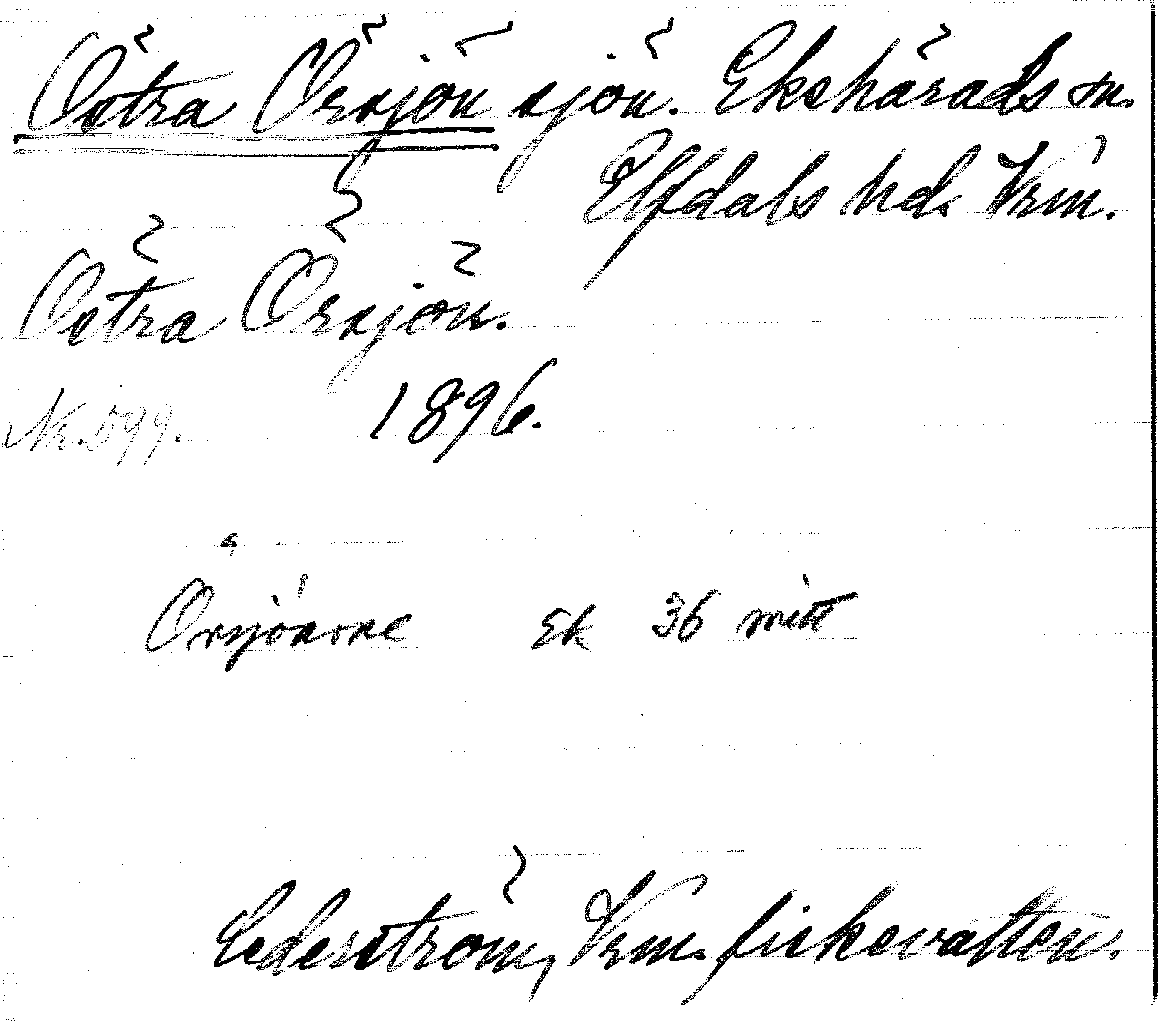 Östra Örsjön sjön. Ekshärads sn.
Elfdals hd. Vrm.
Östra Örsjön.
Nr. 599. 1896.
Örsjöarne Ek 36 mitt
Cederström, Vrm. fiskevatten.